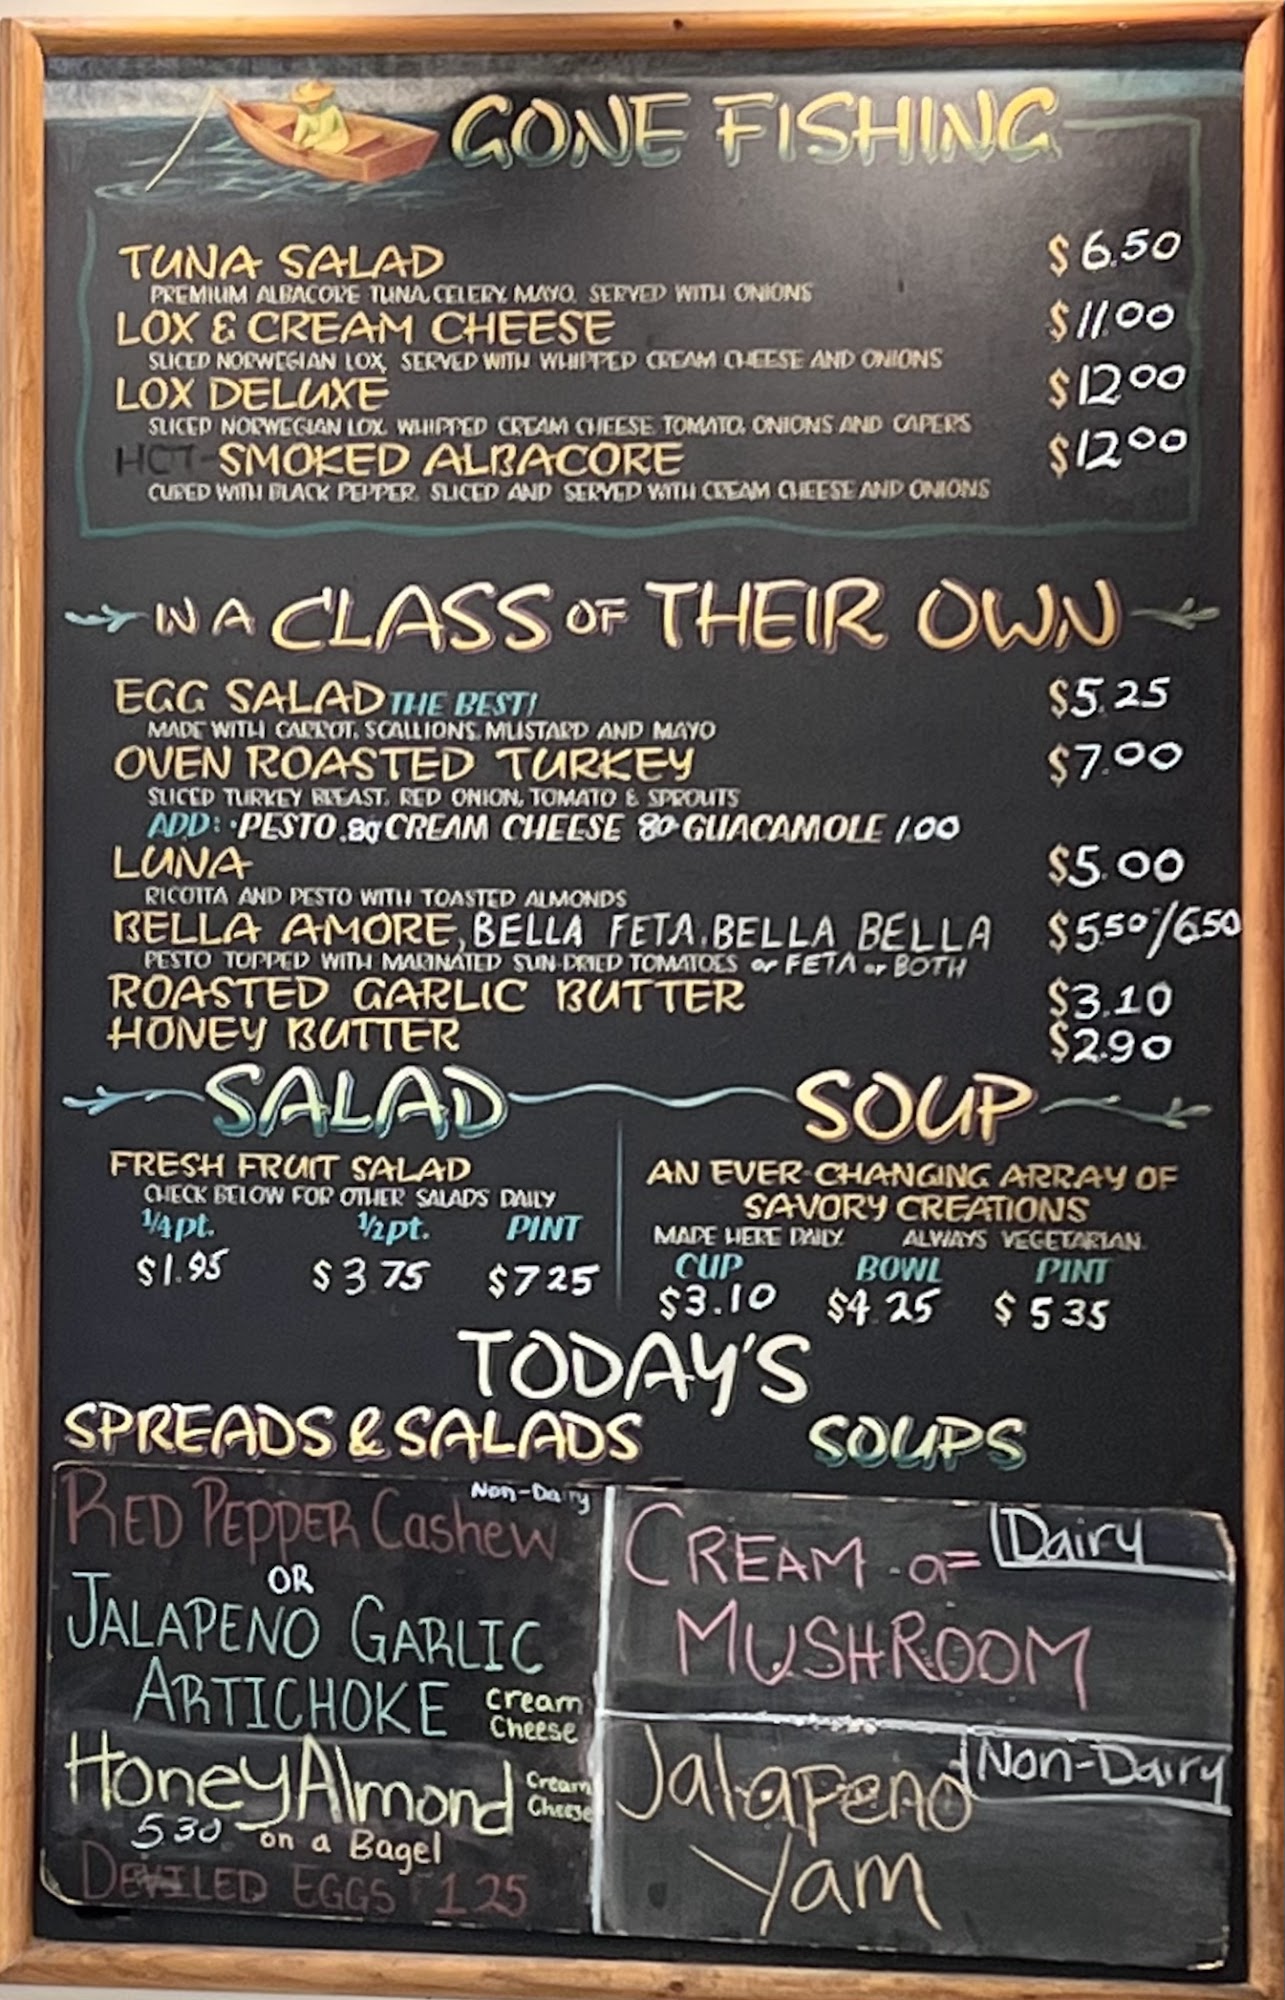 GONE FISHING
TUNA SALAD $6.50
PREMIUM ALBACORE TUNA, CELERY, MAYO, SERVED WITH ONIONS
LOX & CREAM CHEESE $11.00
SLICED NORWEGIAN LOX, SERVED WITH WHIPPED CREAM CHEESE AND ONIONS
LOX DELUXE $12.00
SLICED NORWEGIAN LOX, WHIPPED CREAM CHEESE, TOMATO, ONIONS AND CAPERS
HOT-SMOKED ALBACORE $12.00
CURED WITH BLACK PEPPER, SLICED AND SERVED WITH CREAM CHEESE AND ONIONS
IN A CLASS OF THEIR OWN
EGG SALAD THE BEST! $5.25
MADE WITH CARROT, SCALLIONS, MUSTARD AND MAYO
OVEN ROASTED TURKEY $7.00
SLICED TURKEY BREAST, RED ONION, TOMATO & SPROUTS
ADD: •PESTO .80 CREAM CHEESE 80 GUACAMOLE 1.00
LUNA $5.00
RICOTTA AND PESTO WITH TOASTED ALMONDS
BELLA AMORE, BELLA FETA, BELLA BELLA $5.50/6.50
PESTO TOPPED WITH MARINATED SUN-DRIED TOMATOES or FETA or BOTH
ROASTED GARLIC BUTTER $3.10
HONEY BUTTER $2.90
SALAD
FRESH FRUIT SALAD
CHECK BELOW FOR OTHER SALADS DAILY
1/4 pt. 1/2 pt. PINT
$1.95 $3.75 $7.25
SOUP
AN EVER-CHANGING ARRAY OF
SAVORY CREATIONS
MADE HERE DAILY. ALWAYS VEGETARIAN.
CUP BOWL PINT
$3.10 $4.25 $5.35
TODAY'S
SPREADS & SALADS
Non-Dairy
RED PEPPER Cashew
OR
JALAPENO GARLIC
ARTICHOKE cream
Cheese
Honey Almond Cream
Cheese
5.30 on a Bagel
DEVILED EGGS 1.25
SOUPS
CREAM OF Dairy
MUSHROOM
Jalapeno Non-Dairy
Yam